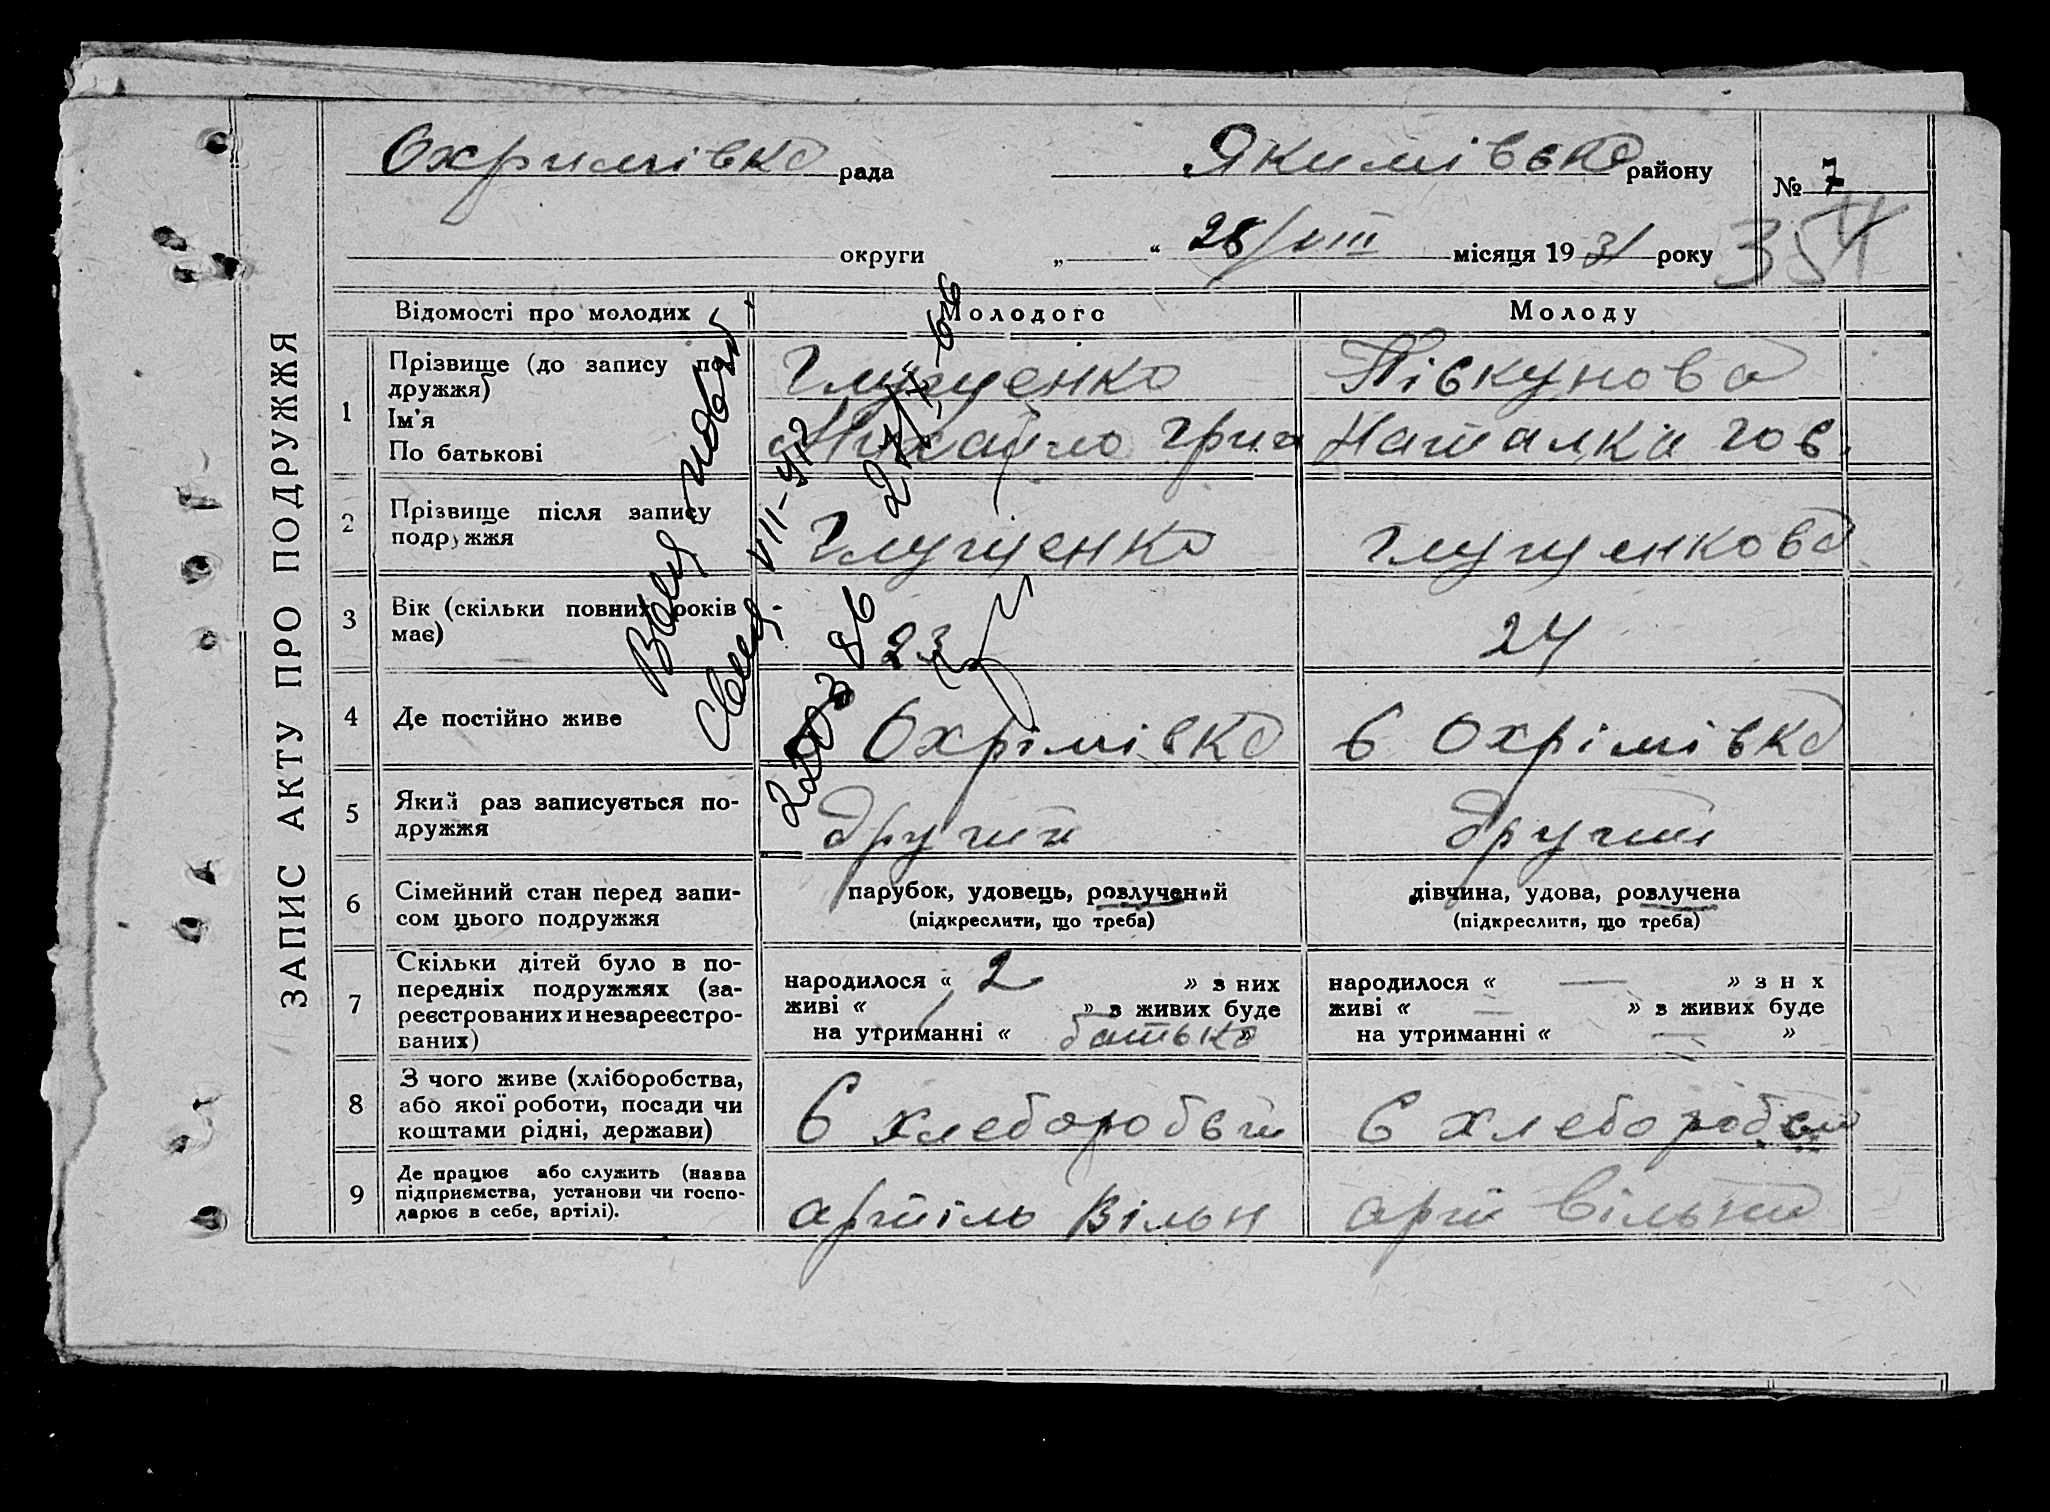 ЗАПИС АКТУ ПРО ПОДРУЖЖЯ
Охримівка рада Якимівска району № 7
округи „ “ 28/VIII місяця 1931 року 354
Відомості про молодих Молодого Молоду
1 Прізвище (до запису подружжя) Глущенко Півкунова
Ім'я
По батькові Михайло Григ Наталка Гов.
2 Прізвище після запису подружжя Глущенко Глущенкова
3 Вік (скільки повних років має) 23 24
4 Де постійно живе Охрімівка в Охрімівка
5 Який раз записується по-
дружжя другий другий
6 Сімейний стан перед запи-
сом цього подружжя парубок, удовець, розлучений дівчина, удова, розлучена
(підкреслити, що треба) (підкреслити, що треба)
7 Скільки дітей було в по-
передніх подружжях (за-
реєстрованих и незареєстро-
ваних)
народилося « 2 » з них
живі « » з живих буде
на утриманні « батька »
народилося « — » з н х
живі « — » з живих буде
на утриманні « — »
8 З чого живе (хліборобства,
або якої роботи, посади чи
коштами рідні, держави) в хлеборобви в хлеборобви
9 Де працює або служить (назва
підприємства, установи чи госпо-
дарює в себе, артілі). артіль Вільн арт вільни
VII-ЯР